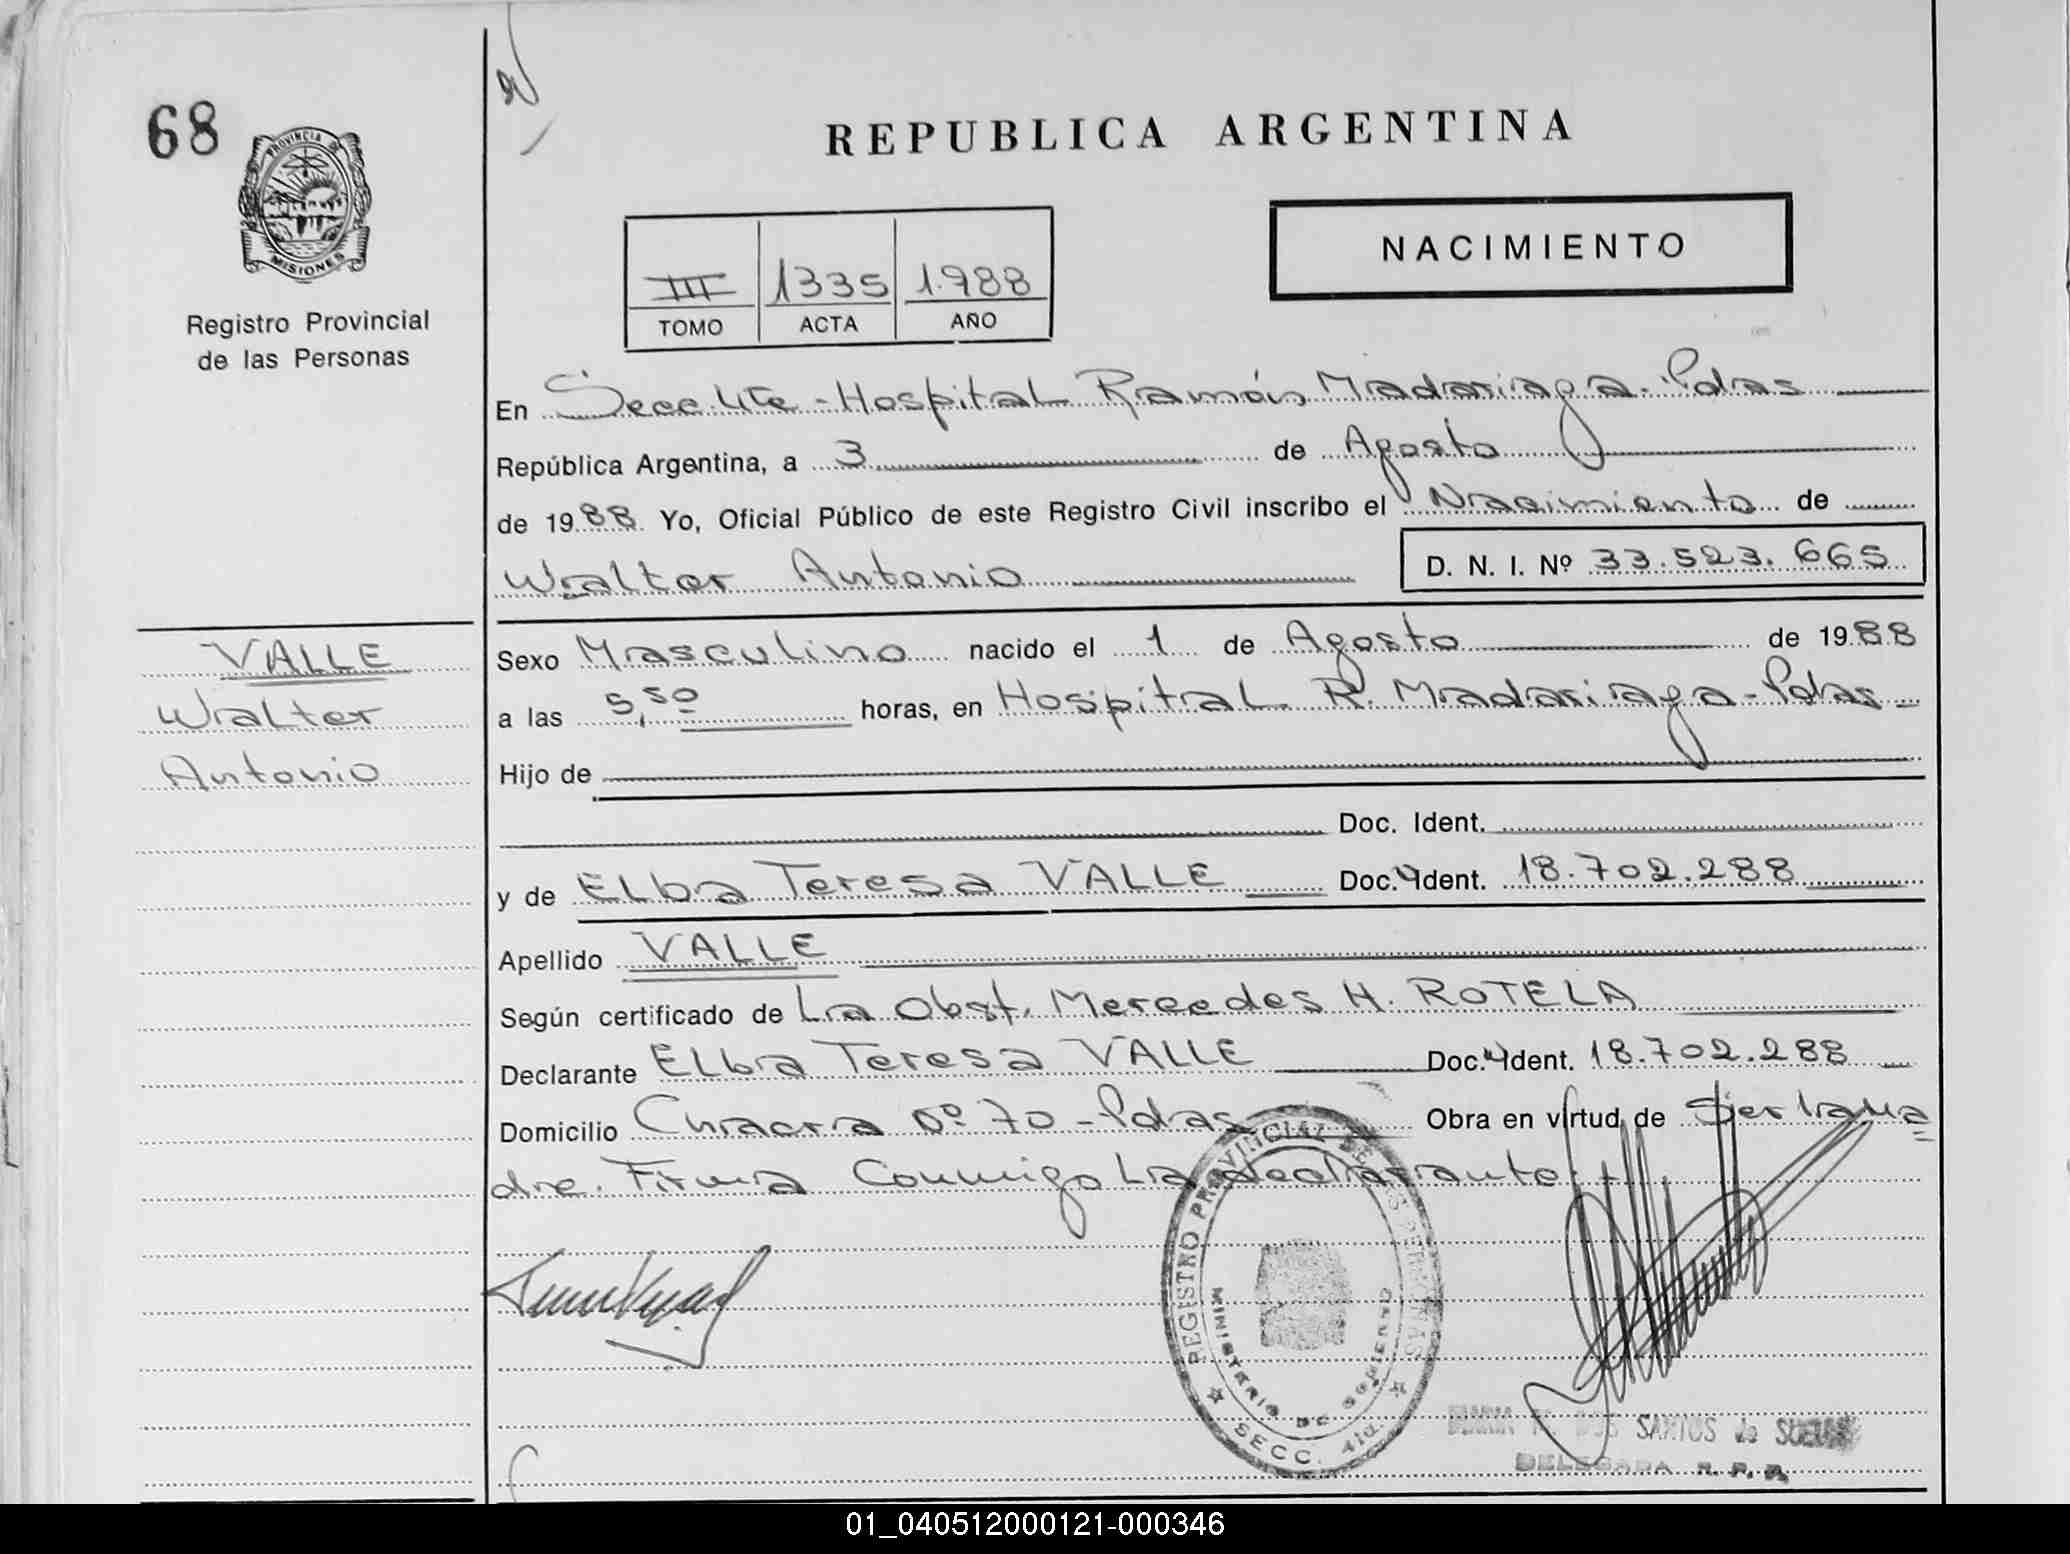 68
REPUBLICA ARGENTINA
PROVINCIA
MISIONES
Registro Provincial
de las Personas
III 1335 1.988
TOMO ACTA AÑO
NACIMIENTO
En Secc. 4ta - Hospital Ramón Madariaga - Pdas
República Argentina, a 3 de Agosto
de 1988 Yo, Oficial Público de este Registro Civil inscribo el Nacimiento de
Walter Antonio D. N. I. Nº 33.523.665
VALLE
Walter
Antonio
Sexo Masculino nacido el 1 de Agosto de 1988
a las 5,50 horas, en Hospital R. Madariaga - Pdas
Hijo de
Doc. Ident.
y de Elba Teresa VALLE Doc. Ident. 18.702.288
Apellido VALLE
Según certificado de La Obst. Mercedes H. ROTELA
Declarante Elba Teresa VALLE Doc. Ident. 18.702.288
Domicilio Chacra Nº 70 - Pdas Obra en virtud de Ser la Ma
dre. Firma Conmigo La declarante
REGISTRO PROVINCIAL DE LAS PERSONAS
MINISTERIO DE GOBIERNO
SECC. 4ta.
DOS SANTOS de
DELEGADA R. P. P.
01_040512000121-000346